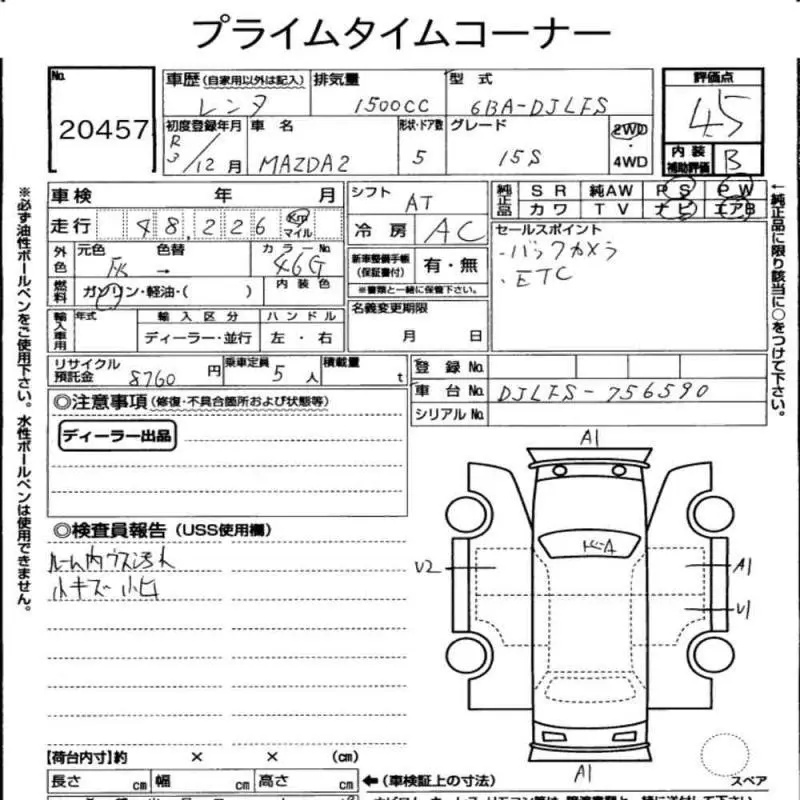 プライムタイムコーナー
No. 20457
車歴 (自家用以外は記入) レンタ
排気量 1500CC
型式 6BA-DJLFS
評価点 4.5
初度登録年月 R3/12月
車名 MAZDA2
形状・ドア数 5
グレード 15S
2WD・4WD
内装補助評価 B
車検 年 月
シフト AT
純正品 SR 純AW PS PW
カワ TV ナビ エアB
走行 48,226 Km マイル
冷房 AC
セールスポイント
・バックカメラ
・ETC
外色 元色 灰 色替 → カラーNo. 46G
内装色
新車整備手帳(保証書付) 有・無
※書類と一緒に保管下さい。
燃料 ガソリン・軽油・( )
輸入車用 年式 輸入区分 ハンドル
ディーラー・並行 左・右
名義変更期限
月 日
リサイクル預託金 8760 円
乗車定員 5 人
積載量 t
登録No.
車台No. DJLFS-756590
シリアルNo.
◎注意事項 (修復・不具合箇所および状態等)
ディーラー出品
◎検査員報告 (USS使用欄)
ルーム内ウス汚れ
小キズ 小凹
A1
V2
A1
V1
A1
スペア
【荷台内寸】約 × × (cm)
長さ cm 幅 cm 高さ cm
←(車検証上の寸法)
※必ず油性ボールペンをご使用下さい。水性ボールペンは使用できません。
←純正品に限り該当に○をつけて下さい。